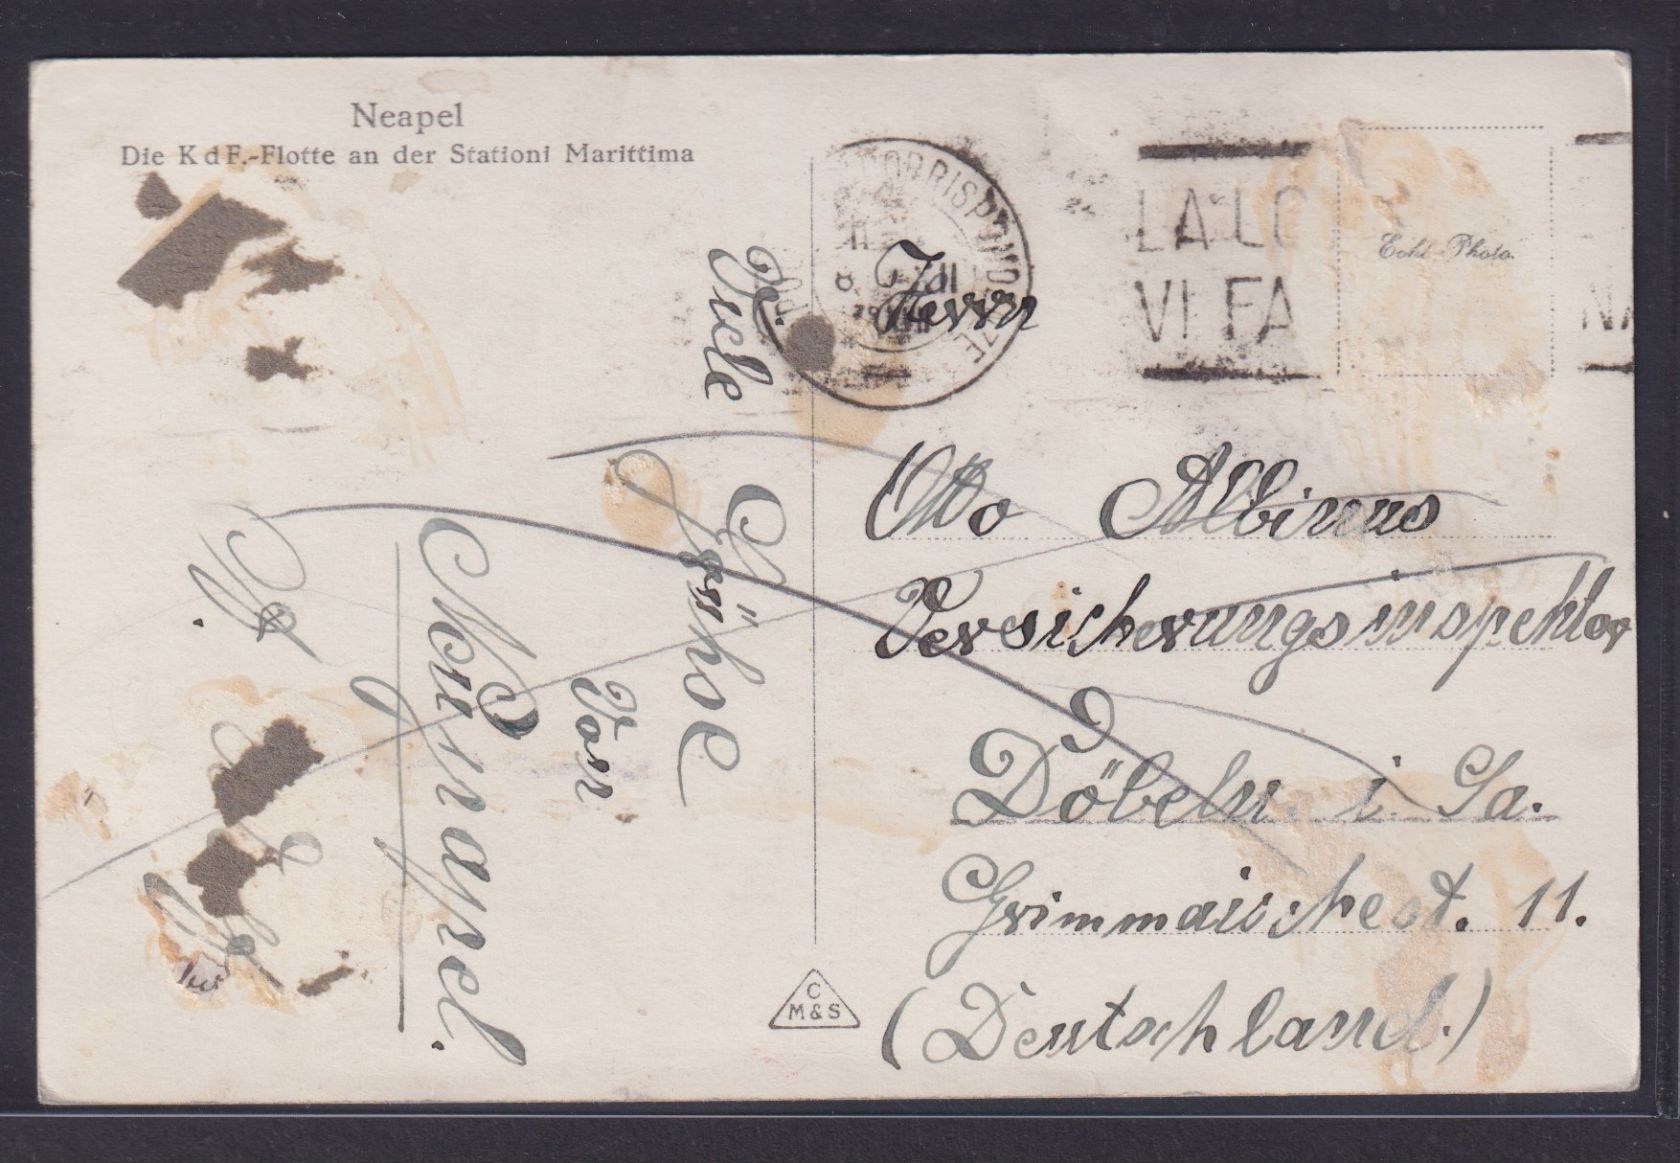 Neapel
Die K d F.-Flotte an der Stationi Marittima
CORRISPONDENZE
8
XII
LA LO
VI FA
NA
Echt Photo
Viele
Grüße
Von
Neapel.
Herrn
Otto Albinus
Versicherungsinspektor
Döbeln i. Sa.
Grimmaischest. 11.
(Deutschland.)
C
M&S